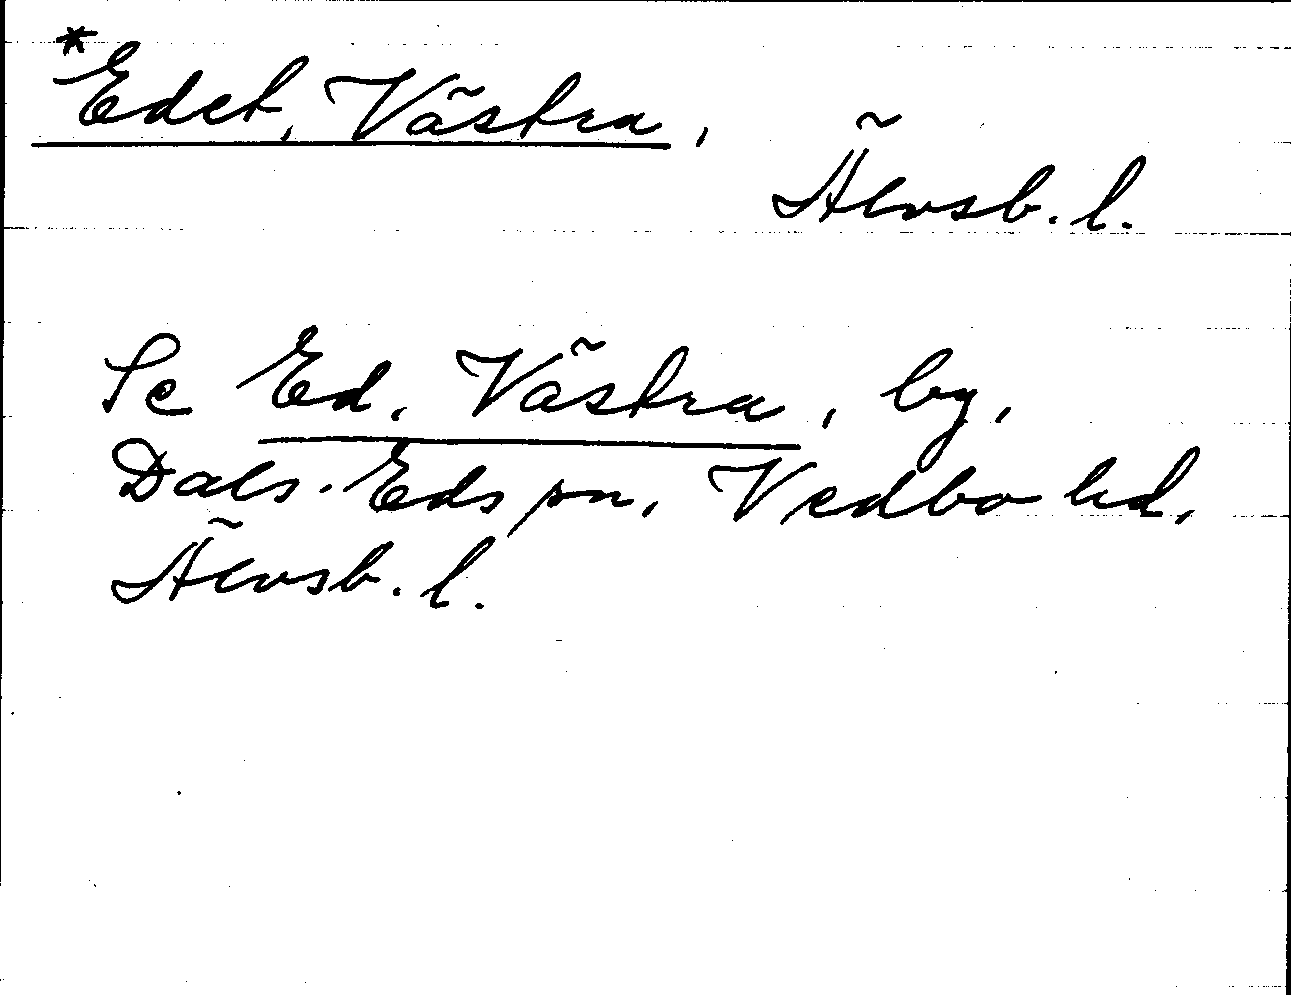 *Edet, Västra,
Älvsb. l.
Se Ed, Västra, by,
Dals-Eds sn, Vedbo hd,
Älvsb. l.